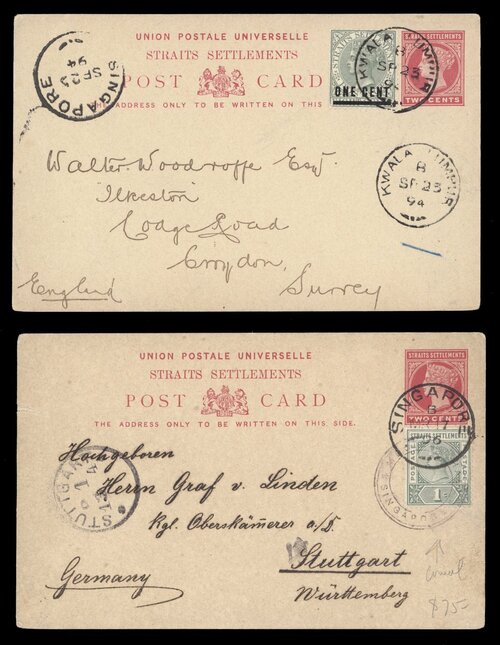 UNION POSTALE UNIVERSELLE
STRAITS SETTLEMENTS
POST CARD
THE ADDRESS ONLY TO BE WRITTEN ON THIS
SINGAPORE
94
STRAITS SETTLEMENTS
ONE CENT
TWO CENTS
KWALA LUMPUR
B
SP 23
Walter Woodroffe Esqr.
Ilkeston
Lodge Road
Croydon,
England Surrey
KWALA LUMPUR
B
SP 23
94
UNION POSTALE UNIVERSELLE
STRAITS SETTLEMENTS
POST CARD
THE ADDRESS ONLY TO BE WRITTEN ON THIS SIDE.
STRAITS SETTLEMENTS
TWO CENTS
SINGAPORE
B
96
STRAITS SETTLEMENTS
POSTAGE
1
SINGAPORE
STUTTGART
Hochgeboren
Herrn Graf v. Linden
Kgl. Oberskämerer a/D.
Stuttgart
Germany Württemberg
$75-